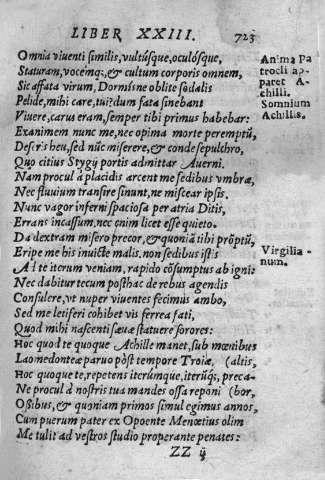 LIBER XXIII. 723
Omnia viventi similis, vultúsque, oculósque,
Staturam, vocemq;, & cultum corporis omnem,
Sic affata virum, Dormisne oblite sodalis
Pelide, mihi care, tui? dum fata sinebant
Vivere, carus eram, semper tibi primus habebar:
Exanimem nunc me, nec opima morte peremptū,
Deseris heu, sed nūc miserere, & conde sepulchro,
Quo citius Stygij portis admittar Averni.
Nam procul à placidis arcent me sedibus vmbræ,
Nec fluvium transire sinunt, ne miscear ipsis.
Nunc vagor inferni spaciosa per atria Ditis,
Errans incassum, nec enim licet esse quieto.
Da dextram misero precor, & quoniā tibi prōptū,
Eripe me his invicte malis. non sedibus istis
Ad te iterum veniam, rapido cōsumptus ab igni:
Nec dabitur tecum posthac de rebus agendis
Consulere, vt nuper viventes fecimus ambo,
Sed me letiferi cohibet vis ferrea fati,
Quod mihi nascenti sævæ statuere sorores:
Hoc quod te quoque Achille manet, sub mœnibus
Laomedonteæ paruo pòst tempore Troiæ, (altis,
Hoc quoque te, repetens iterúmque, iterūq́;, preca-
Ne procul à nostris tua mandes ossa reponi (bor,
Ossibus, & quoniam primos simul egimus annos,
Cum puerum pater ex Opoente Menœtius olim
Me tulit ad vestros studio properante penates:
ZZ ij
Anima Pa
trocli ap-
paret A-
chilli.
Somnium
Achillis.
Virgilia-
num.